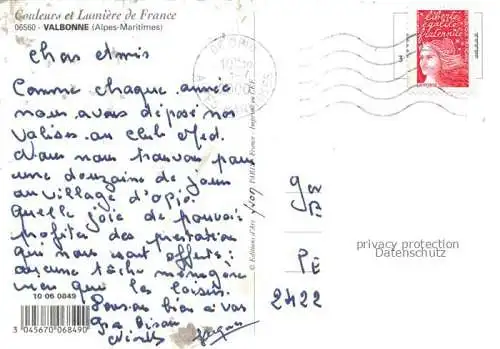 Couleurs et Lumière de France
06560 - VALBONNE (Alpes-Maritimes)
Chers Amis
Comme chaque année
nous avons déposé nos
valises au club Med.
Nous nous trouvons pour
une douzaine de jours
au village d'opio.
Quelle joie de pouvoir
profiter des prestations
qui nous sont offerts :
aucune tâche ménagère
rien que les loisirs.
Pensons bien à vous
Gros Bisous
10 06 0849
3 045670 068490
© Editions d'Art
LA POSTE
privacy protection
Datenschutz
PE
2422